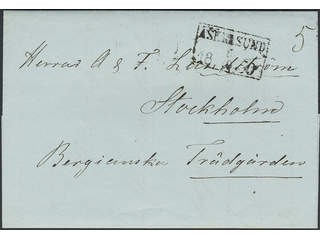 ASKERSUND
5
Herrar A & F. Lundström
Stockholm
Bergianska Trädgården